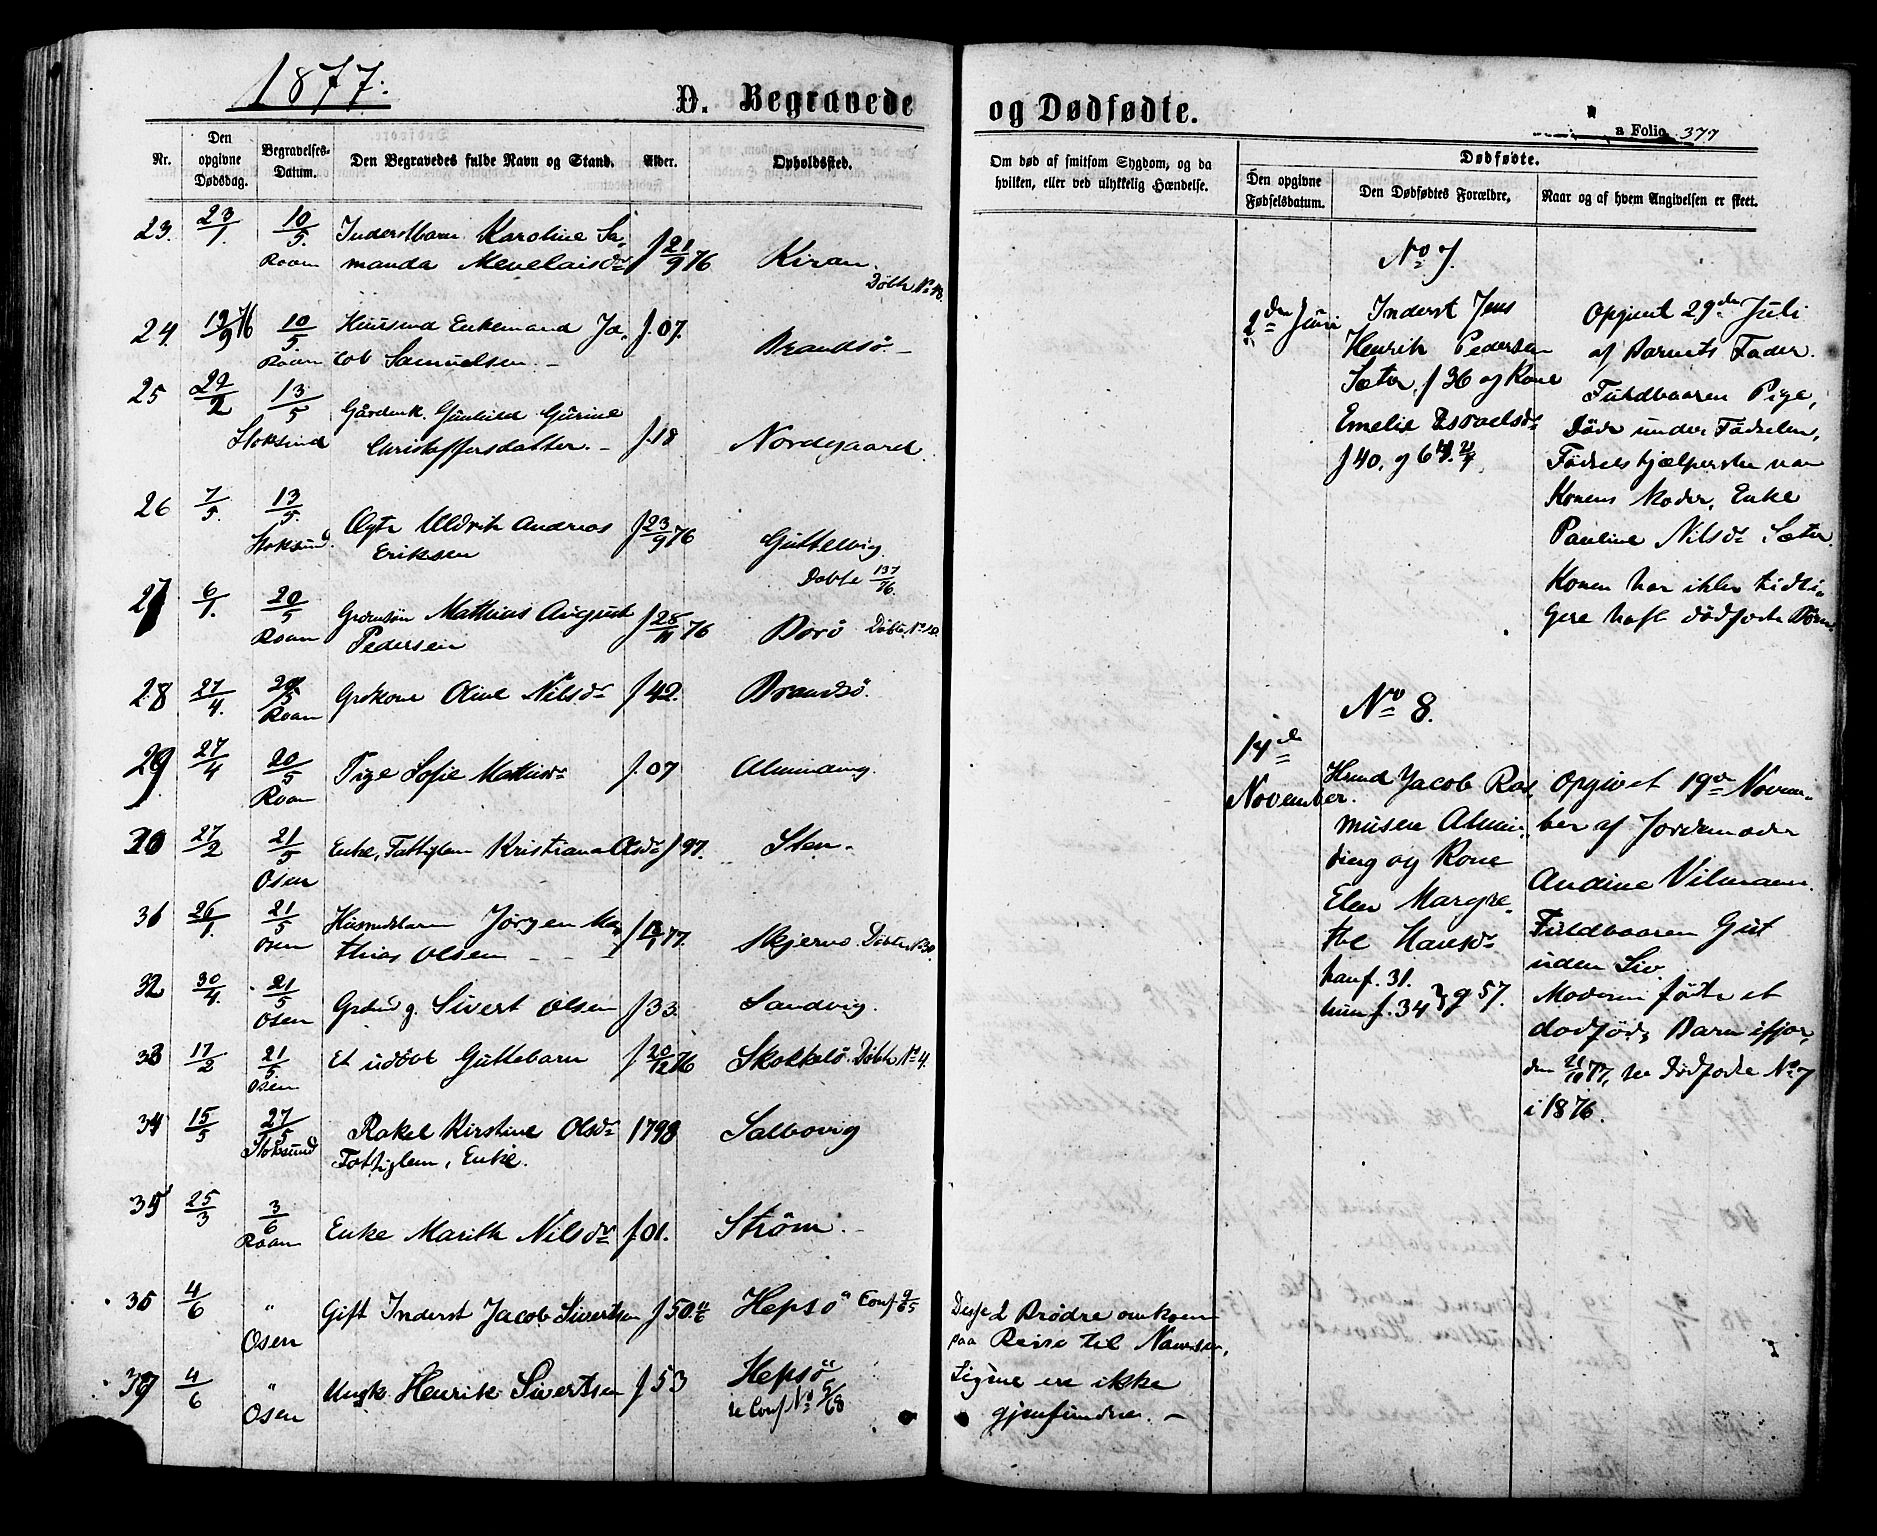 1877.
D. Begravede
og Dødfødte.
a Folio 377
Nr.
Den opgivne Dødsdag.
Begravelses-Datum.
Den Begravedes fulde Navn og Stand.
Alder.
Opholdssted.
Om død af smitsom Sygdom, og da hvilken, eller ved ulykkelig Hændelse.
Dødfødte.
Den opgivne Fødselsdatum.
Den Dødfødtes Forældre.
Naar og af hvem Angivelsen er skeet.
23. 23/1. 10/5. Inderstbarn Karoline Ja- f 21/9 76 Kiran.
Roan manda Menelaisdr Døbte No
24. 19/9 76 10/5 Huusmd Enkemand Ja- f. 07. Brandsø. –
Roan cob Samuelsen. –
25 22/2 13/5 Gårdmk. Gunhild Gurine f. 18 Nordgaard.
Stoksund Christoffersdatter. –
26 7/5. 13/5. Ægte Uldrik Andreas f 23/9 76 Guttelvig.
Stoksund. Eriksen Døbte 137/76.
27 6/1. 20/5 Grdmsøn Mathias August f 28/11 76 Borø Døbte No
Roan Pedersen
28 27/4. 20/5 Grdkone Oline Nilsdr f 42. Brandsø.
Roan
29 27/4 20/5 Pige Sofie Mathisdr f. 07 Almenning.
Roan
30 27/2 21/5 Enke, Fattiglem Kristiana Olsdr f 97. Sten.
Osen
31 26/1. 21/5 Husmdsbarn Jørgen Ma- f 77. Skjervø Døbte
Osen thias Olsen - - -
32 30/4. 21/5 Grdmd g. Sivert Olsen f 33. Sandvig.
Osen
33 17/2 21/5. Et udøbt Guttebarn f 20/12 76 Skottelø. Døbte No 4.
Osen
34 15/5 27/5 Rakel Kirstine Olsdr 1798 Salbovig
Stoksund Fattiglem, Enke.
35 25/3 3/6 Enke Marith Nilsdr f 01. Strøm. –
Roan
36 4/6 " Gift Inderst Jacob Sivertsen f 50 Hepsø Conf 9/65
Osen
37 4/6 " Ungk. Henrik Sivertsen f 53 Hepsø
Osen se Conf. No 5/68
Disse 2 Brødre omkom
paa Reise til Namsen,
Ligene ere ikke
gjenfundne. –
No 7.
2den Juni
Inderst Jens
Henrik Pedersen
Sæter, f 36 og Kone
Emelie Israelsdr
f 40. g 64
Opgivet 29de Juli
af Barnets Fader.
Fuldbaaren Pige,
Døde under Fødselen,
Fødselshjælpersken var
Konens Moder, Enke
Pauline Nilsdr Sæter.
Konen har ikke tidli-
gere haft dødfødte Børn.
No 8.
14de
November.
Hmnd Jacob Ras-
musen Almin-
ding og Kone
Elen Margre-
the Hansdr
han f. 31.
hun f. 34 } g 57.
Opgivet 19de Novem-
ber af Jordemoder
Andine Vilmann.
Fuldbaaren Gut
uden Liv.
Moderen fødte et
dødfødt Barn ifjor,
den 21/10 77, se Dødfødte No 7
i 1876.